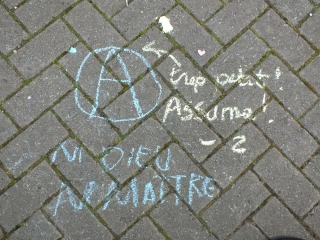 A
trop petit!
Assume!
- 2
NI DIEU
NI MAITRE